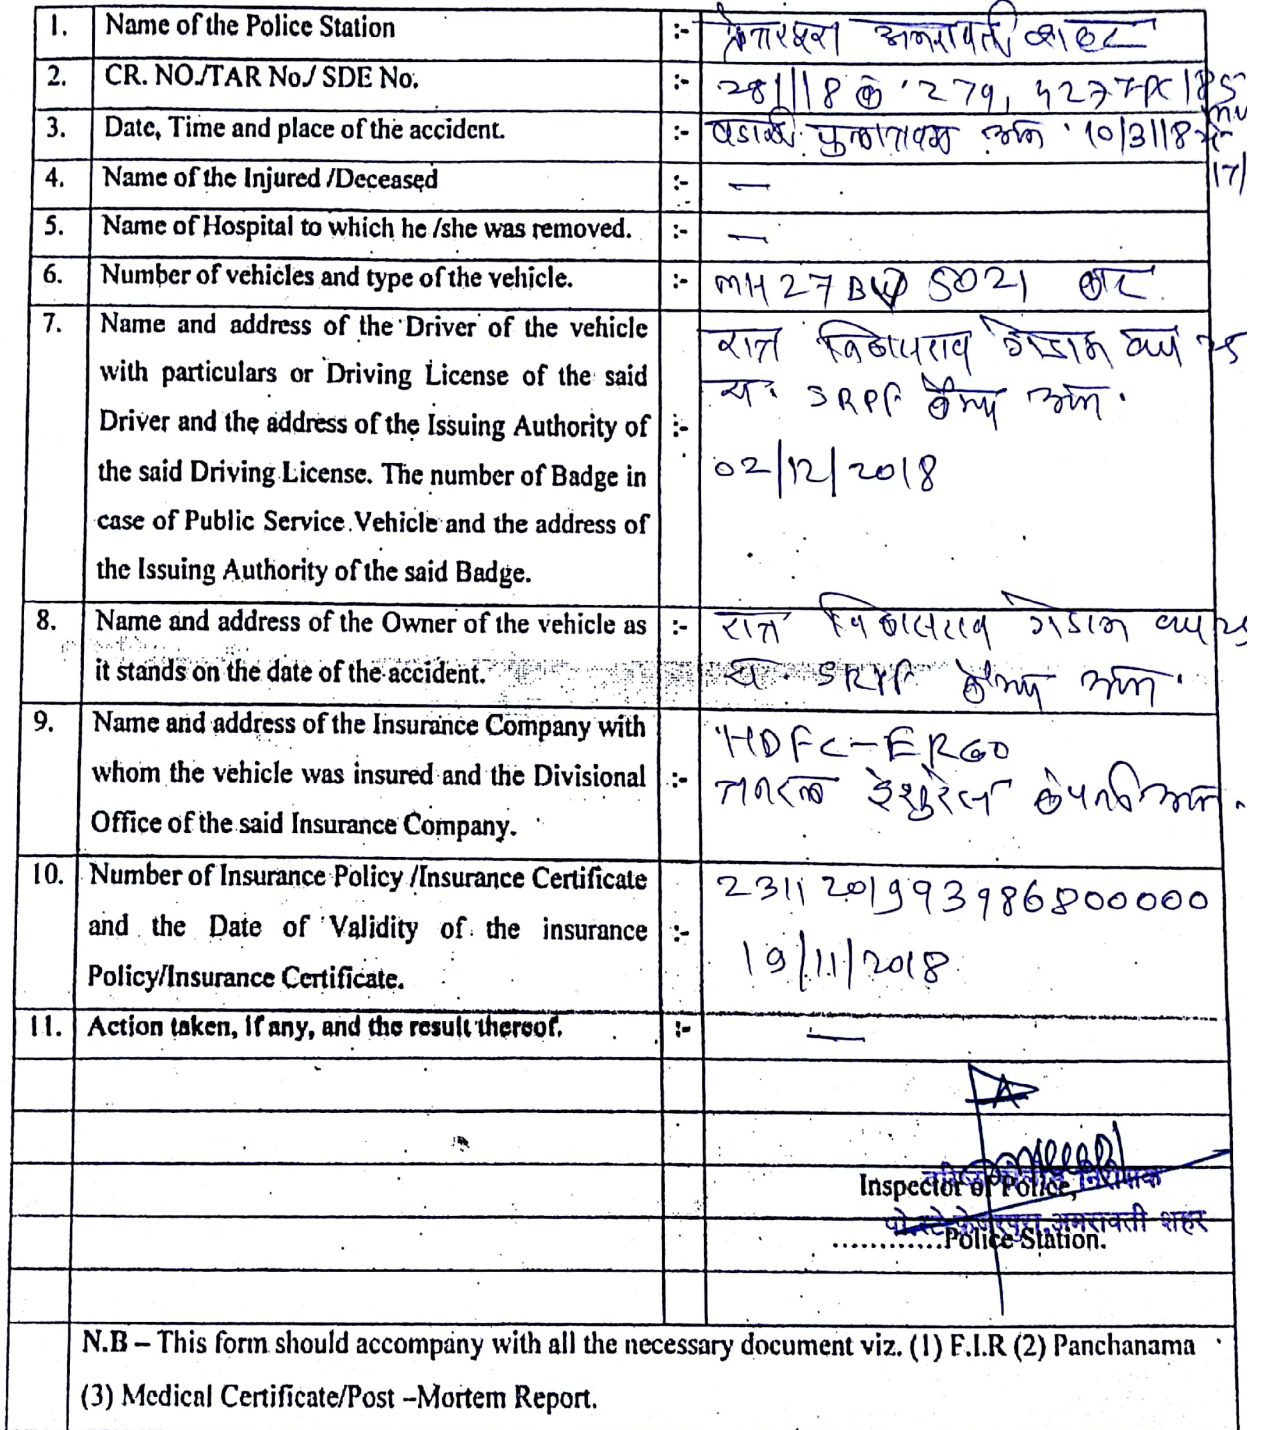 1. Name of the Police Station :- फ्रेजरपुरा अमरावती शहर
2. CR. NO./TAR No./ SDE No. :- 281/18 279, 427 IPC 185
3. Date, Time and place of the accident. :- वडाळी 10/3/18
17/
4. Name of the Injured /Deceased :- —
5. Name of Hospital to which he /she was removed. :- —
6. Number of vehicles and type of the vehicle. :- MH 27 BV 5021 कार
7. Name and address of the Driver of the vehicle
with particulars or Driving License of the said
Driver and the address of the Issuing Authority of :-
the said Driving License. The number of Badge in
case of Public Service Vehicle and the address of
the Issuing Authority of the said Badge.
राज विलासराव गेडाम वय 25
रा. SRPF कॅम्प अम.
02/12/2018
8. Name and address of the Owner of the vehicle as :-
it stands on the date of the accident.
राज विलासराव गेडाम वय 25
रा. SRPF कॅम्प अम.
9. Name and address of the Insurance Company with
whom the vehicle was insured and the Divisional :-
Office of the said Insurance Company.
HDFC-ERGO
जनरल इंशुरेंस कंपनी अम.
10. Number of Insurance Policy /Insurance Certificate
and the Date of Validity of the insurance :-
Policy/Insurance Certificate.
2311201993986800000
19/11/2018
11. Action taken, if any, and the result thereof. :- —
Inspector of Police,
वरिष्ठ पोलीस निरीक्षक
पो.स्टे. फ्रेजरपुरा, अमरावती शहर
............Police Station.
N.B – This form should accompany with all the necessary document viz. (1) F.I.R (2) Panchanama
(3) Medical Certificate/Post –Mortem Report.